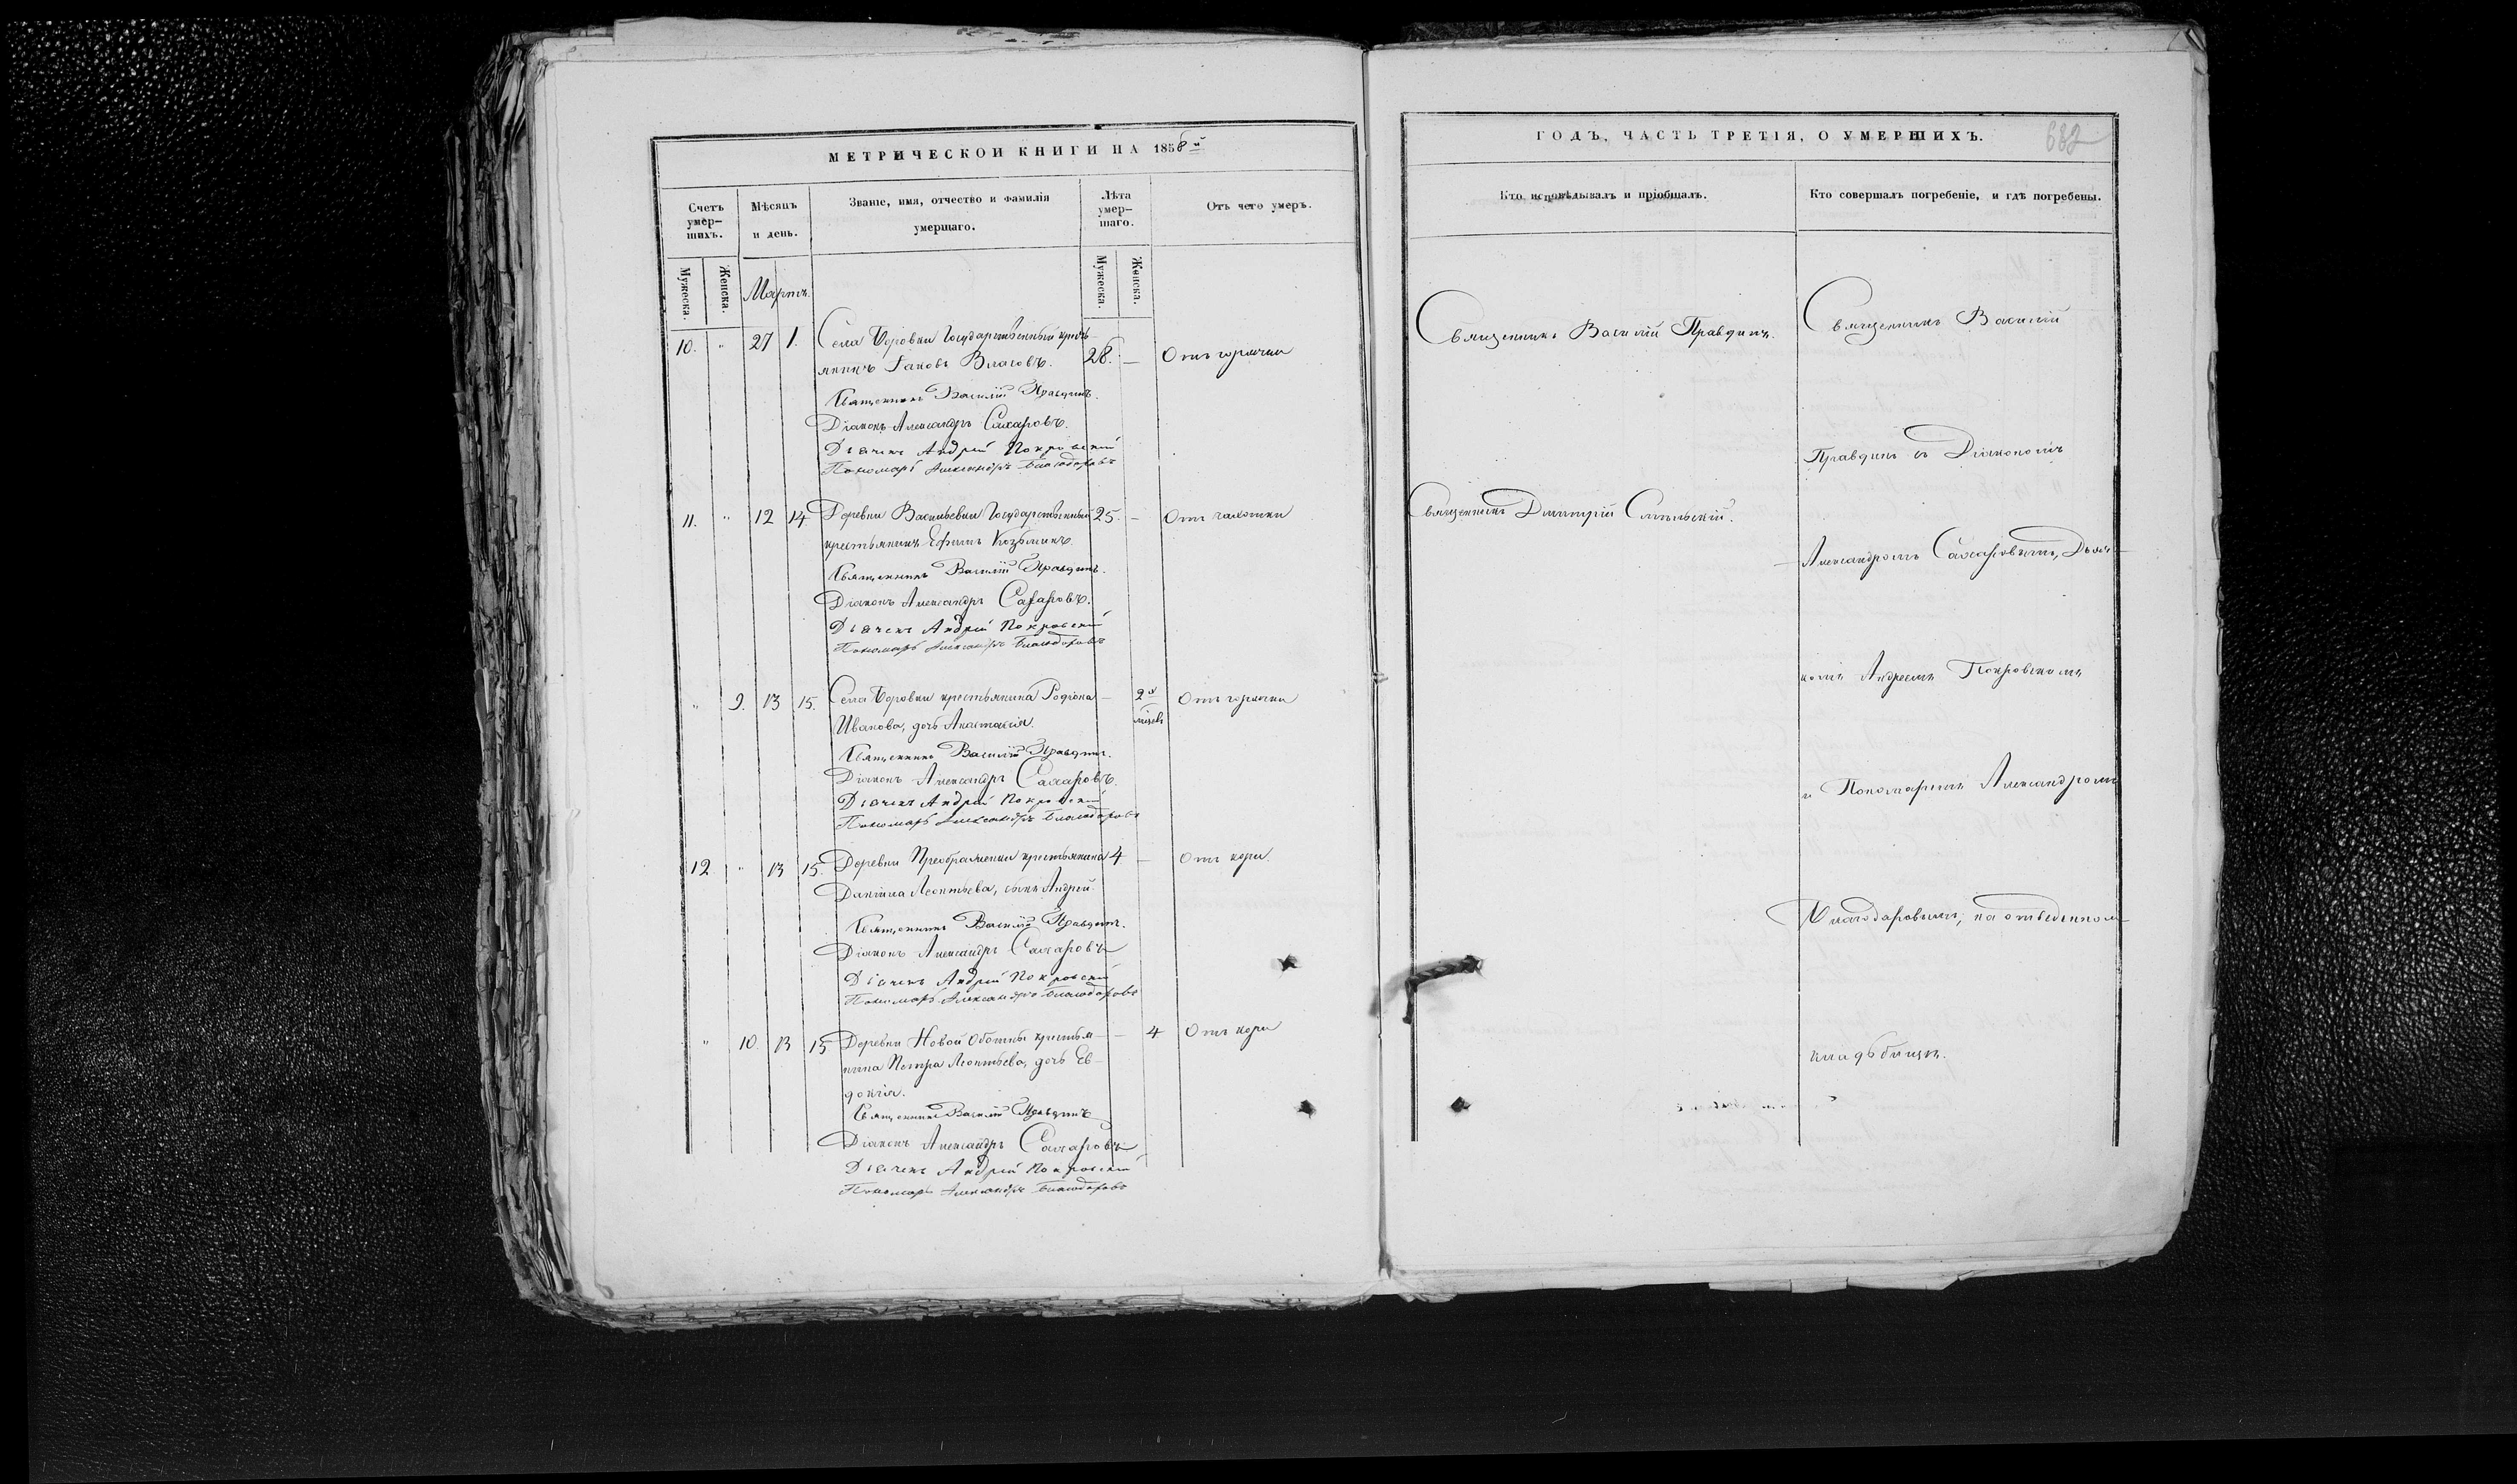 МЕТРИЧЕСКОЙ КНИГИ НА 1858й
Счетъ умер-шихъ.
Мѣсяцъ и день.
Званіе, имя, отчество и фамилія умершаго.
Лѣта умер-шаго.
Отъ чего умеръ.
Мужеска.
Женска.
Мужеска.
Женска.
Мартъ.
10. " 27 1. Села Боровки Государственный кресть-
янинъ Іаковъ Власовъ. 28. — Отъ горячки
Священникъ Василій Правдинъ.
Діаконъ Александръ Сахаровъ.
Дьячекъ Андрей Покровскій
Пономарь Александръ Благодаровъ
11. " 12 14 Деревни Васильевки Государственный 25. — Отъ чахотки
крестьянинъ Ефимъ Козьминъ.
Священникъ Василій Правдинъ.
Діаконъ Александръ Сахаровъ.
Дьячекъ Андрей Покровскій
Пономарь Александръ Благодаровъ
" 9. 13 15. Села Боровки крестьянина Родіона — 2х Отъ горячки
Иванова, дочь Анастасія. мѣсяц
Священникъ Василій Правдинъ.
Діаконъ Александръ Сахаровъ.
Дьячекъ Андрей Покровскій
Пономарь Александръ Благодаровъ
12 " 13 15. Деревни Преображенки крестьянина 4 — Отъ кори.
Даніила Леонтьева, сынъ Андрей.
Священникъ Василій Правдинъ.
Діаконъ Александръ Сахаровъ
Дьячекъ Андрей Покровскій
Пономарь Александръ Благодаровъ
" 10. 13 15 Деревни Новой крестья- — 4 Отъ кори
нина Петра Леонтьева, дочь Ев-
докія.
Священникъ Василій Правдинъ
Діаконъ Александръ Сахаровъ
Дьячекъ Андрей Покровскій
Пономарь Александръ Благодаровъ
ГОДЪ, ЧАСТЬ ТРЕТІЯ, О УМЕРШИХЪ.
Кто исповѣдывалъ и пріобщалъ.
Кто совершалъ погребеніе, и гдѣ погребены.
Священникъ Василій Правдинъ.
Священникъ Димитрій
Священникъ Василій
Правдинъ съ Діакономъ
Александромъ Сахаровымъ, Дьяч-
комъ Андреемъ Покровскимъ
и Пономаремъ Александромъ
Благодаровымъ, на отведенном
кладбищѣ.